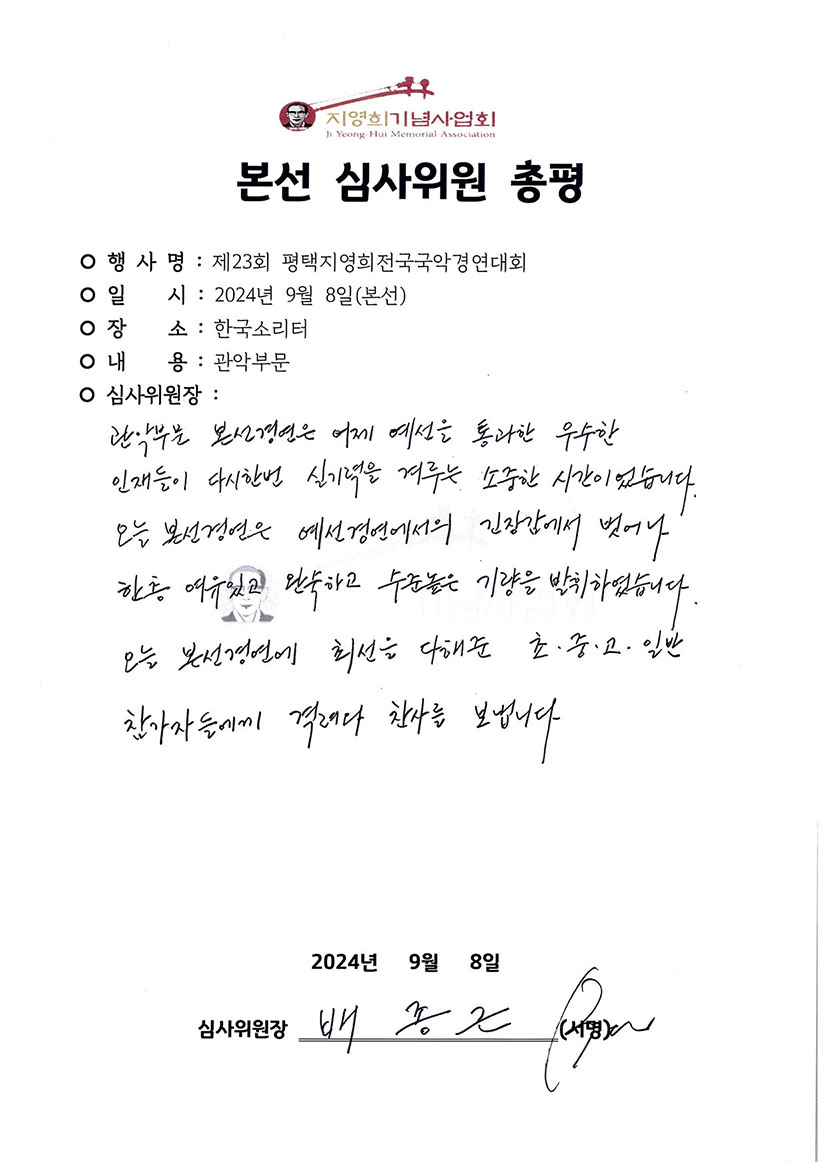 지영희기념사업회
Ji Yeong-Hui Memorial Association
본선 심사위원 총평
행 사 명 : 제23회 평택지영희전국국악경연대회
일 시 : 2024년 9월 8일(본선)
장 소 : 한국소리터
내 용 : 관악부문
심사위원장 :
관악부문 본선경연은 어제 예선을 통과한 우수한
인재들이 다시한번 실기력을 겨루는 소중한 시간이었습니다.
오늘 본선경연은 예선경연에서의 긴장감에서 벗어나
한층 여유있고 완숙하고 수준높은 기량을 발휘하였습니다.
오늘 본선경연에 최선을 다해준 초·중·고·일반
참가자들에게 격려와 찬사를 보냅니다
2024년 9월 8일
심사위원장 배 종 (서명)